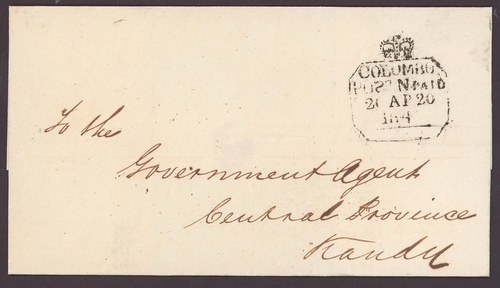 COLOMBO
POST NOT PAID
20 AP 20
184
To the
Government Agent
Central Province
Kandy